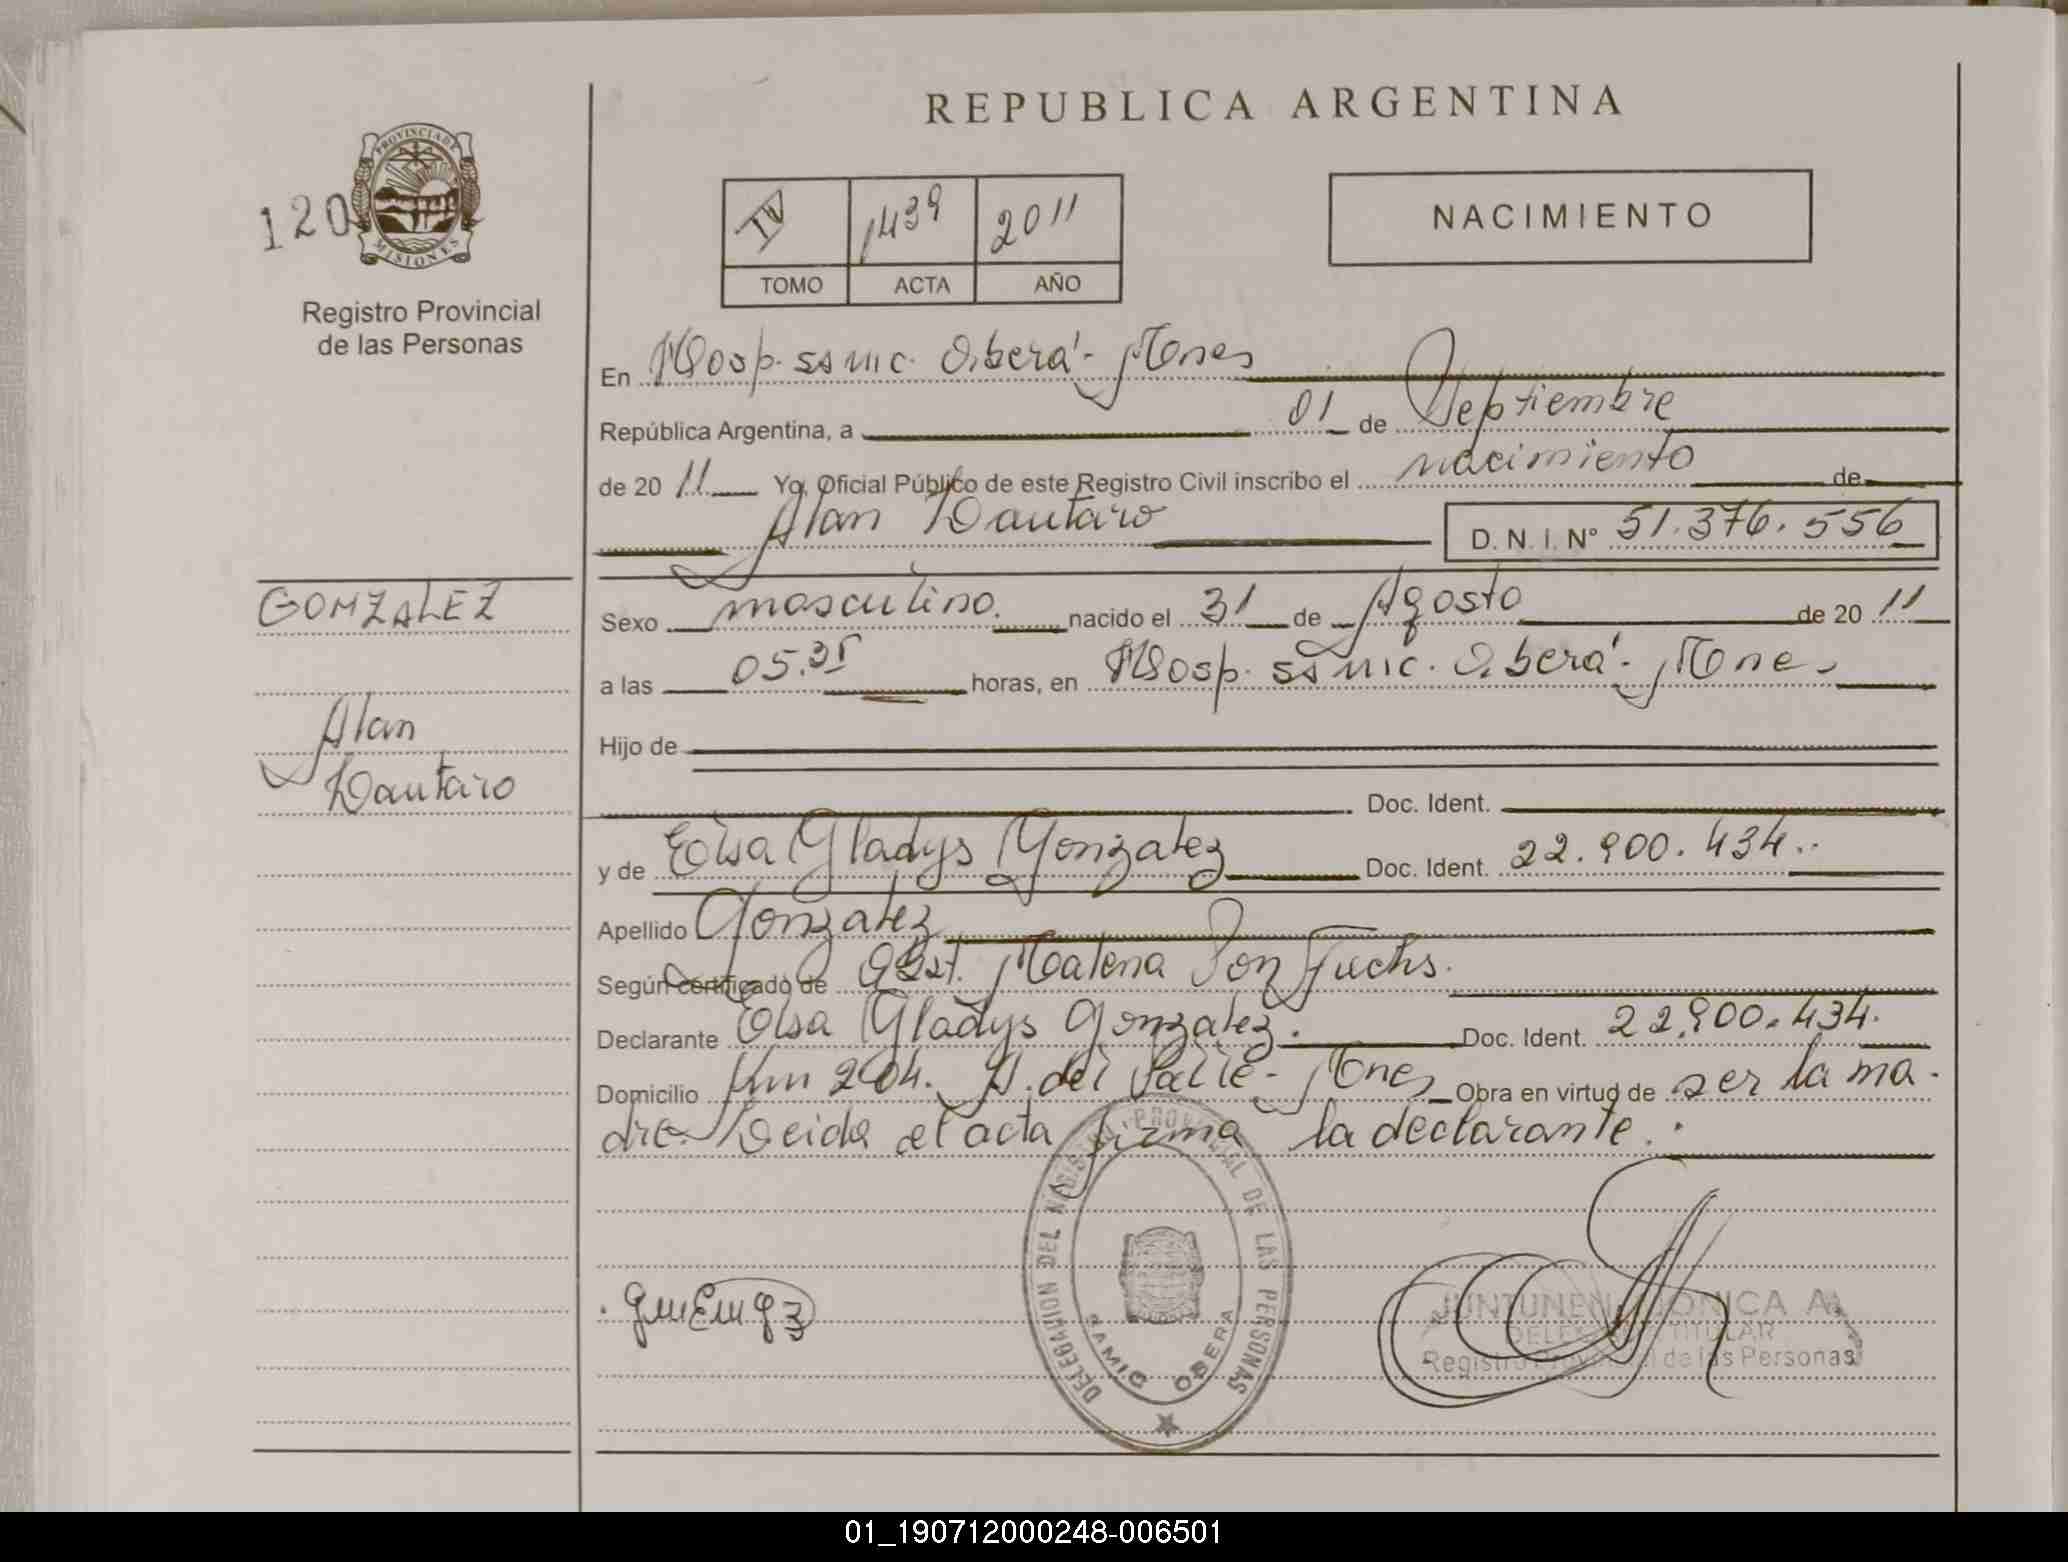 REPUBLICA ARGENTINA
PROVINCIA DE
MISIONES
120
Registro Provincial
de las Personas
IV 1439 2011
TOMO ACTA AÑO
NACIMIENTO
En Hosp. samic. Oberá - Mnes
República Argentina, a 01 de Septiembre
de 2011 Yo, Oficial Público de este Registro Civil inscribo el nacimiento de
Alan Lautaro D.N.I. Nº 51.376.556
GONZALEZ
Alan
Lautaro
Sexo masculino. nacido el 31 de Agosto de 2011
a las 05.35 horas, en Hosp. samic. Oberá - Mnes
Hijo de
Doc. Ident.
y de Elsa Gladys Gonzalez Doc. Ident. 22.900.434..
Apellido Gonzalez
Según certificado de Obst. Malena Von Fuchs.
Declarante Elsa Gladys Gonzalez. Doc. Ident. 22.900.434.
Domicilio Km 204. A. del Valle - Mnes Obra en virtud de ser la ma-
dre. Leida el acta firma la declarante.
DELEGACION DEL REGISTRO PROVINCIAL DE LAS PERSONAS
SAMIC OBERA
JUNTUNEN MONICA A.
DELEGADA TITULAR
Registro Provincial de las Personas
01_190712000248-006501